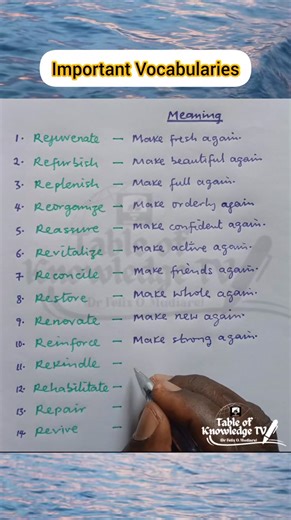 Important Vocabularies
Meaning
1. Rejuvenate — Make fresh again.
2. Refurbish — Make beautiful again
3. Replenish — Make full again.
4. Reorganize — Make orderly again
5. Reassure — Make confident again.
6. Revitalize — Make active again.
7. Reconcile — Make friends again.
8. Restore — Make whole again.
9. Renovate — Make new again.
10. Reinforce — Make strong again.
11. Rekindle —
12. Rehabilitate —
13. Repair —
14. Revive —
Table of
Knowledge TV